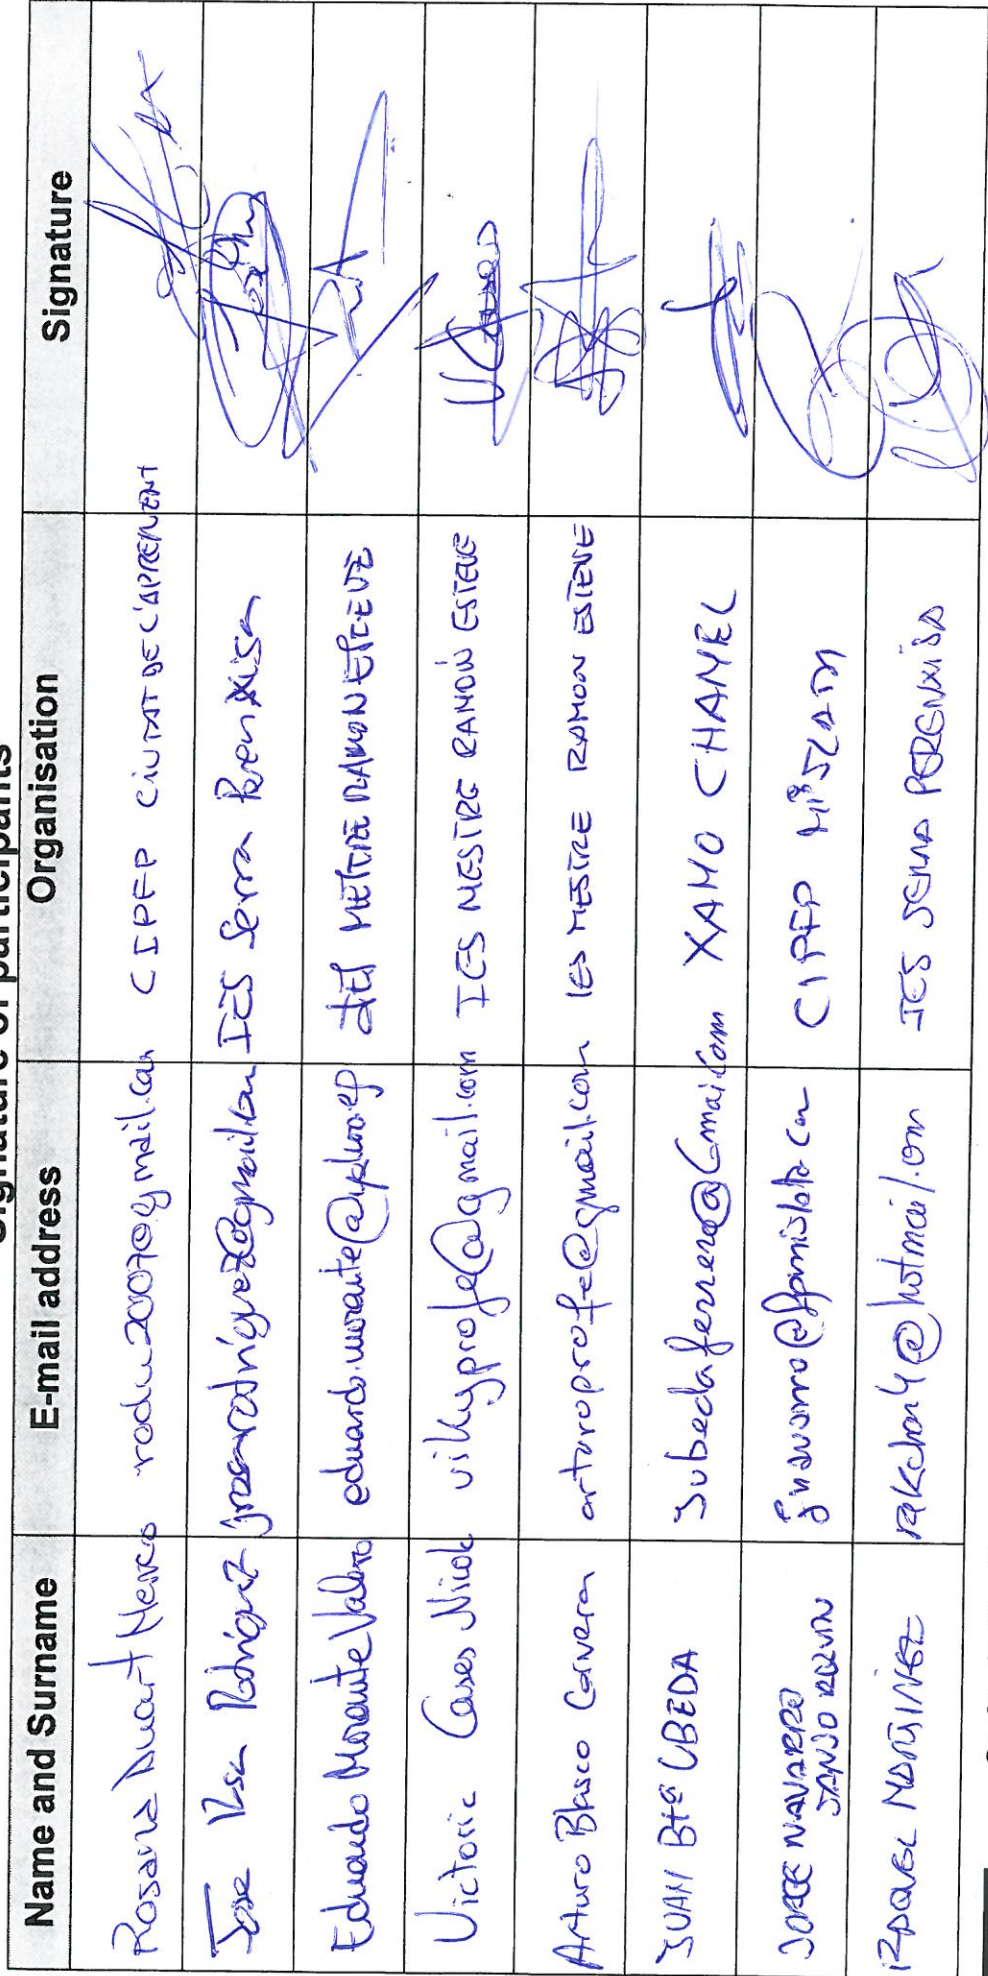 Signature of participants
Name and Surname E-mail address Organisation Signature
Rosana Duart rodu2007@gmail.com CIPFP CIUTAT DE L'APRENENT
Jose Rosa Rodríguez jrosarodriguez@gmail.com IES Serra Perenxisa
Eduardo Morante Valero eduardo.morante@ IES MESTRE RAMON ESTEVE
Victoria Cases vikyprofe@gmail.com IES MESTRE RAMÓN ESTEVE
Arturo Blasco Cervera arturoprofe@gmail.com IES MESTRE RAMON ESTEVE
JUAN Btª UBEDA Jubedaferrero@Gmail.com XAMO CHAMEL
JORGE NAVARRO jnavarro@fpmislata.com CIPFP MISLATA
SANJOAQUIN
RAQUEL MARTINEZ rakchan4@hotmail.com IES SERRA PERENXISA